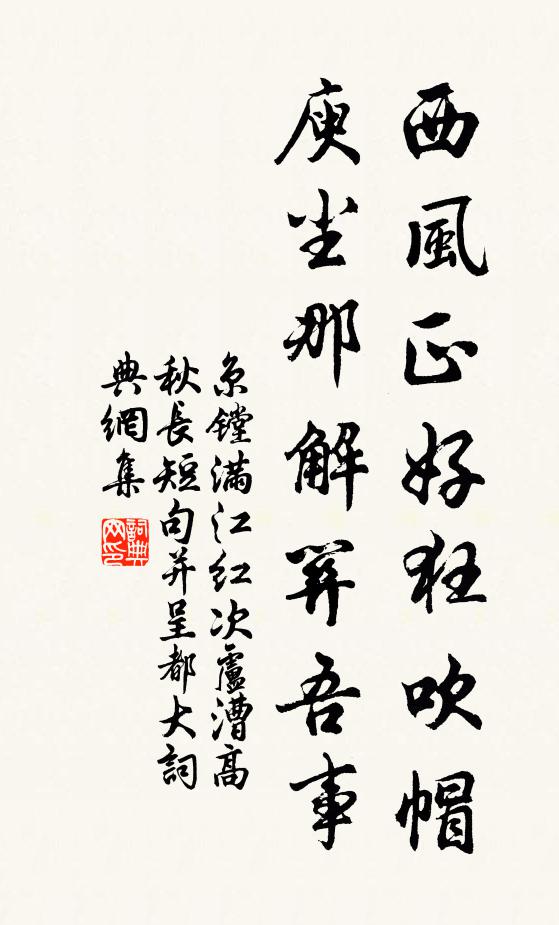 西風正好狂吹帽
庾坐那解羿吾事
京鏜滿江紅次盧漕高
秋長短句并呈都大詞
典網集
詞典
网印